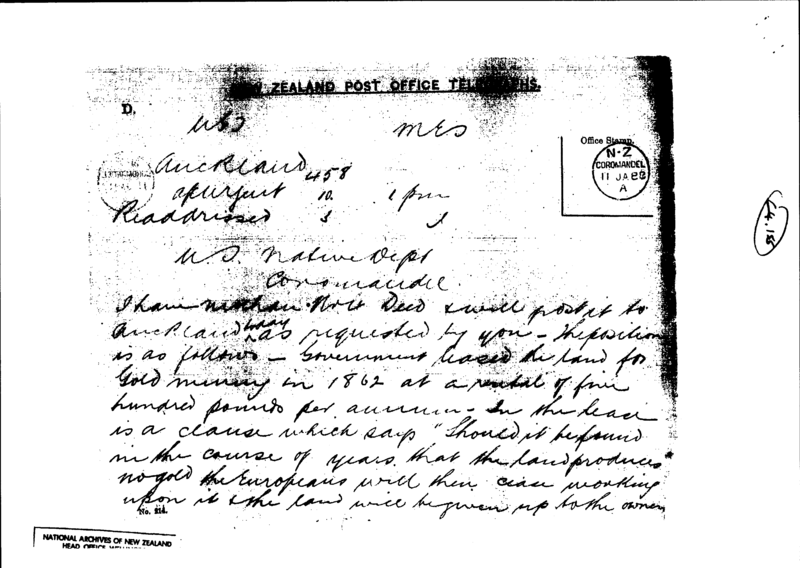 NEW ZEALAND POST OFFICE TELEGRAPHS.
D.
Office Stamp.
N.Z
COROMANDEL
11 JA 86
A
Auckland 458
urgent 10. 1 pm
Readdressed
U.S. Native Dept
Coromandel.
I have Deed & will post it to
Auckland today as requested by you – The position
is as follows – Government leased the land for
Gold mining in 1862 at a rental of five
hundred pounds per annum – In the lease
is a clause which says "Should it be found
in the course of years that the land produces
no gold the Europeans will then cease working
upon it & the land will be given up to the owners
NATIONAL ARCHIVES OF NEW ZEALAND
HEAD OFFICE